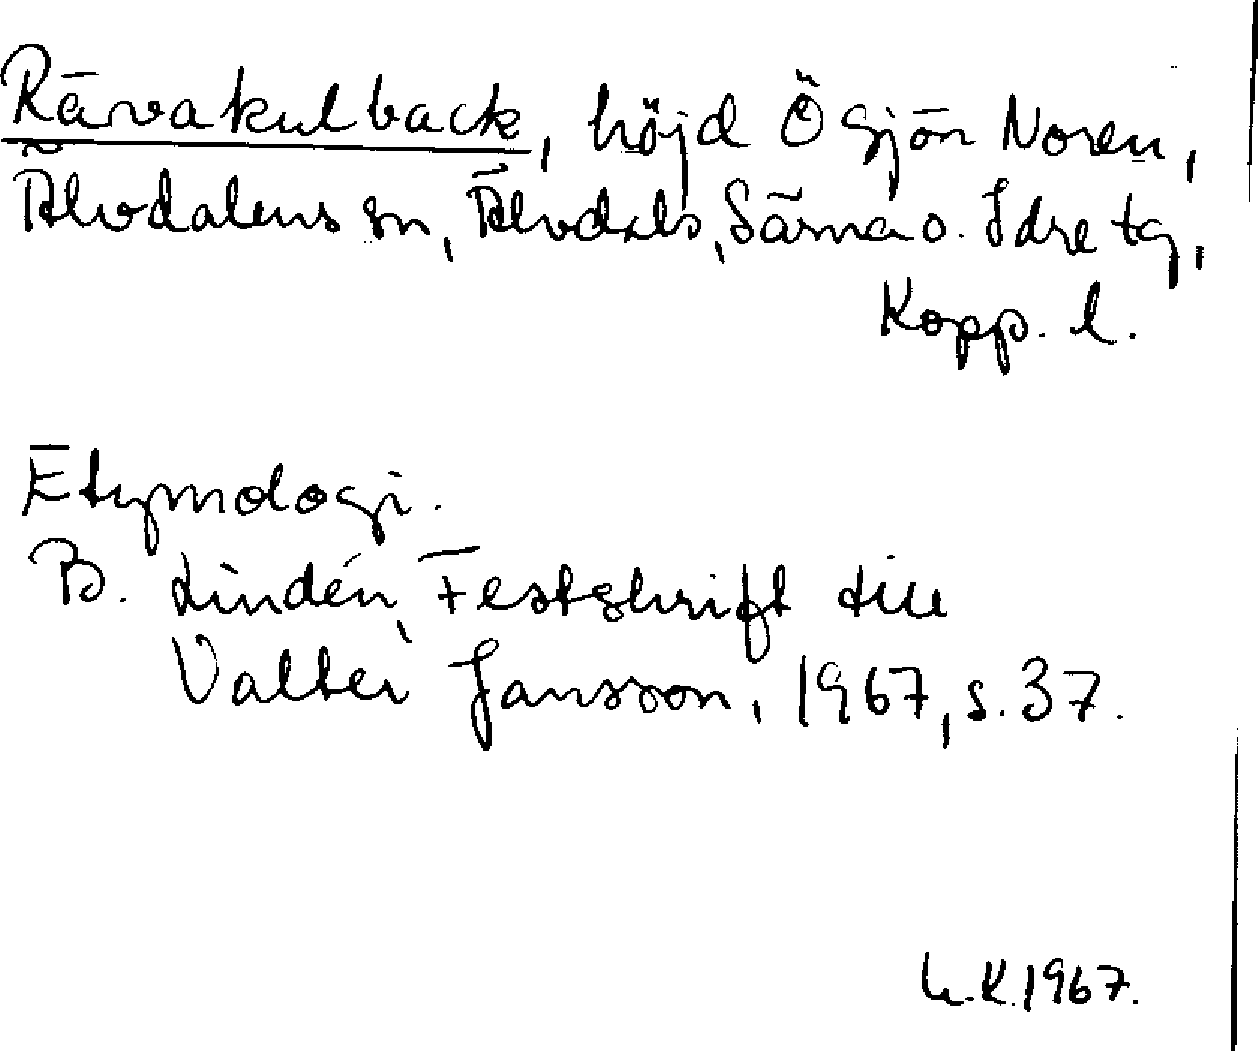 Rävakulback, höjd Ö sjön Noren,
Älvdalens sn, Älvdals, Särna o. Idre tg,
Kopp. l.
Etymologi.
B. Lindén, Festskrift till
Valter Jansson, 1967, s. 37.
K. 1967.